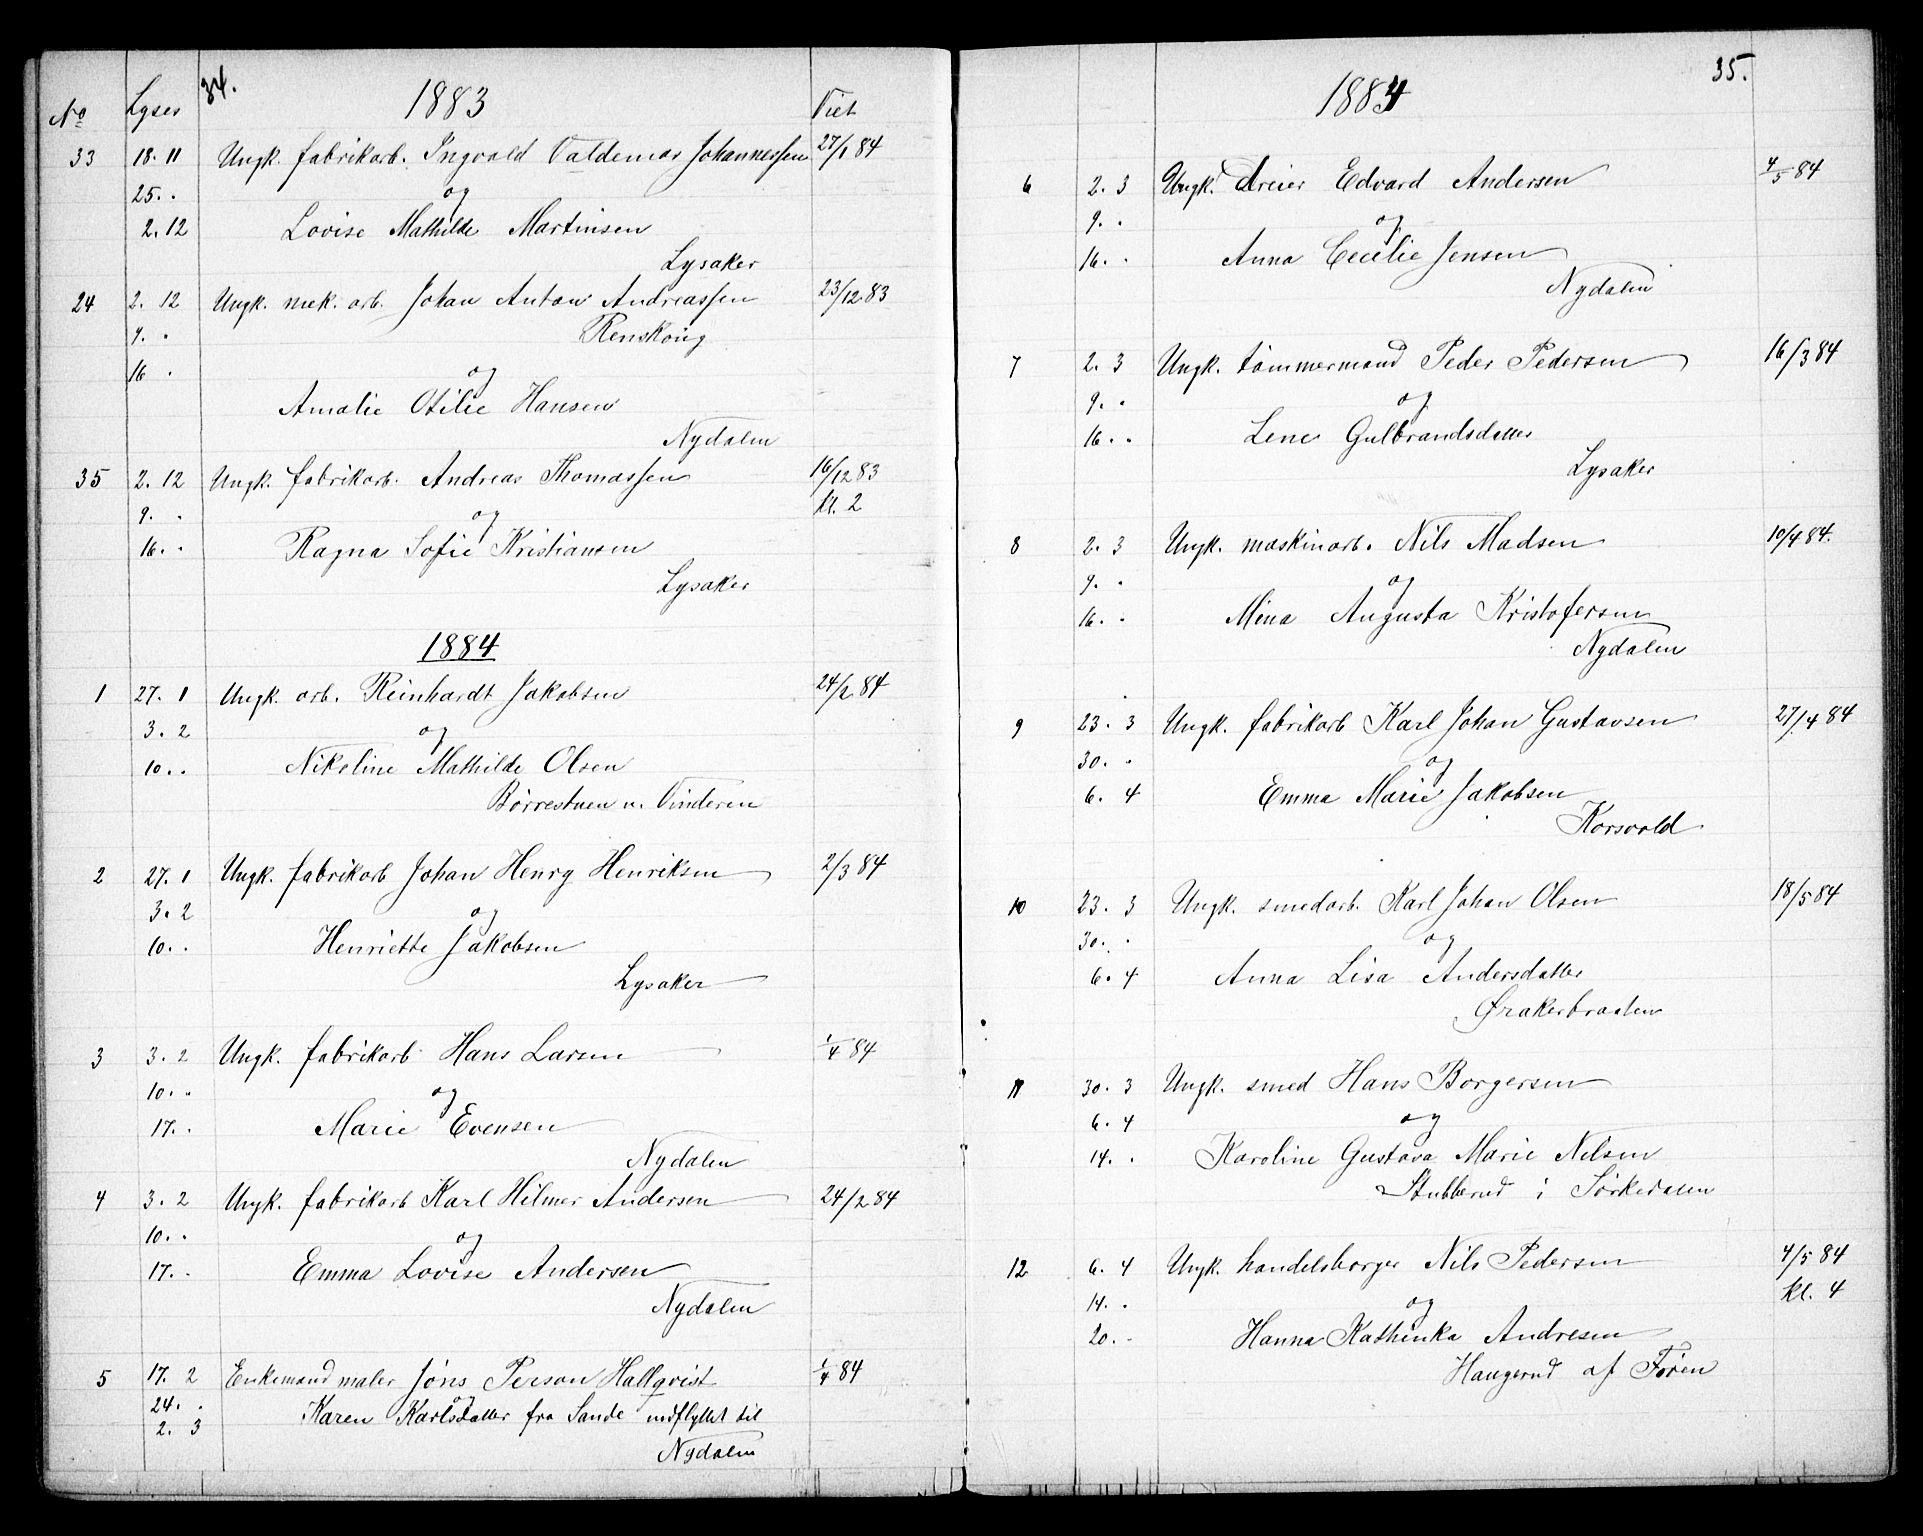 34.
1883
No Lyser Viet
33 18. 11 Ungk. fabrikarb. Ingvald Valdemar Johannessen 27/1 84
25. " og
2. 12 Lovise Mathilde Martinsen
Lysaker
24 2. 12 Ungk. mek. arb. Johan Anton Andreassen 23/12 83
9. " Renskoug
16 " og
Amalie Otilie Hansen
Nydalen
35 2. 12 Ungk. fabrikarb. Andreas Thomassen 16/12 83
9. " og kl. 2
16. " Ragna Sofie Kristiansen
Lysaker
1884
1 27. 1 Ungk. arb. Reinhardt Jakobsen 24/2 84
3. 2 og
10. " Nikoline Mathilde Olsen
Börrestuen u. Vinderen
2 27. 1 Ungk. fabrikarb Johan Henry Henriksen 2/3 84
3. 2 og
10. " Henriette Jakobsen
Lysaker
3 3. 2 Ungk. fabrikarb. Hans Larsen 1/4 84
10. " og
17. " Marie Evensen
Nydalen
4 3. 2 Ungk. fabrikarb Karl Hilmer Andersen 24/2 84
10. " og
17. " Emma Lovise Andersen
Nydalen
5 17. 2 Enkemand maler Jöns Person Hallqvist 1/4 84
24. " og
2. 3 Karen Karlsdatter fra Sande indflyttet til
Nydalen
35.
1884
6 2. 3 Ungk. dreier Edvard Andersen 4/5 84
9. " og
16. " Anna Cecilie Jensen
Nydalen
7 2. 3 Ungk. tömmermand Peder Pedersen 16/3 84
9. " og
16. " Lene Gulbrandsdatter
Lysaker
8 2. 3 Ungk. maskinarb. Nils Madsen 10/4 84.
9. " og
16. " Mina Augusta Kristofersen
Nydalen
9 23. 3 Ungk. fabrikarb Karl Johan Gustavsen 27/4 84
30. " og
6. 4 Emma Marie Jakobsen
Korsvold
10 23. 3 Ungk. smedarb. Karl Johan Olsen 18/5 84
30. " og
6. 4 Anna Lisa Andersdatter
Ørakerbraaten
11 30. 3 Ungk. smed Hans Borgersen
6. 4 og
14. " Karoline Gustava Marie Nilsen
Stubberud i Sörkedalen
12 6. 4 Ungk. handelsborger Nils Pedersen 4/5 84
14. " og kl. 4
20. " Hanna Kathinka Andresen
Haugerud af Föien